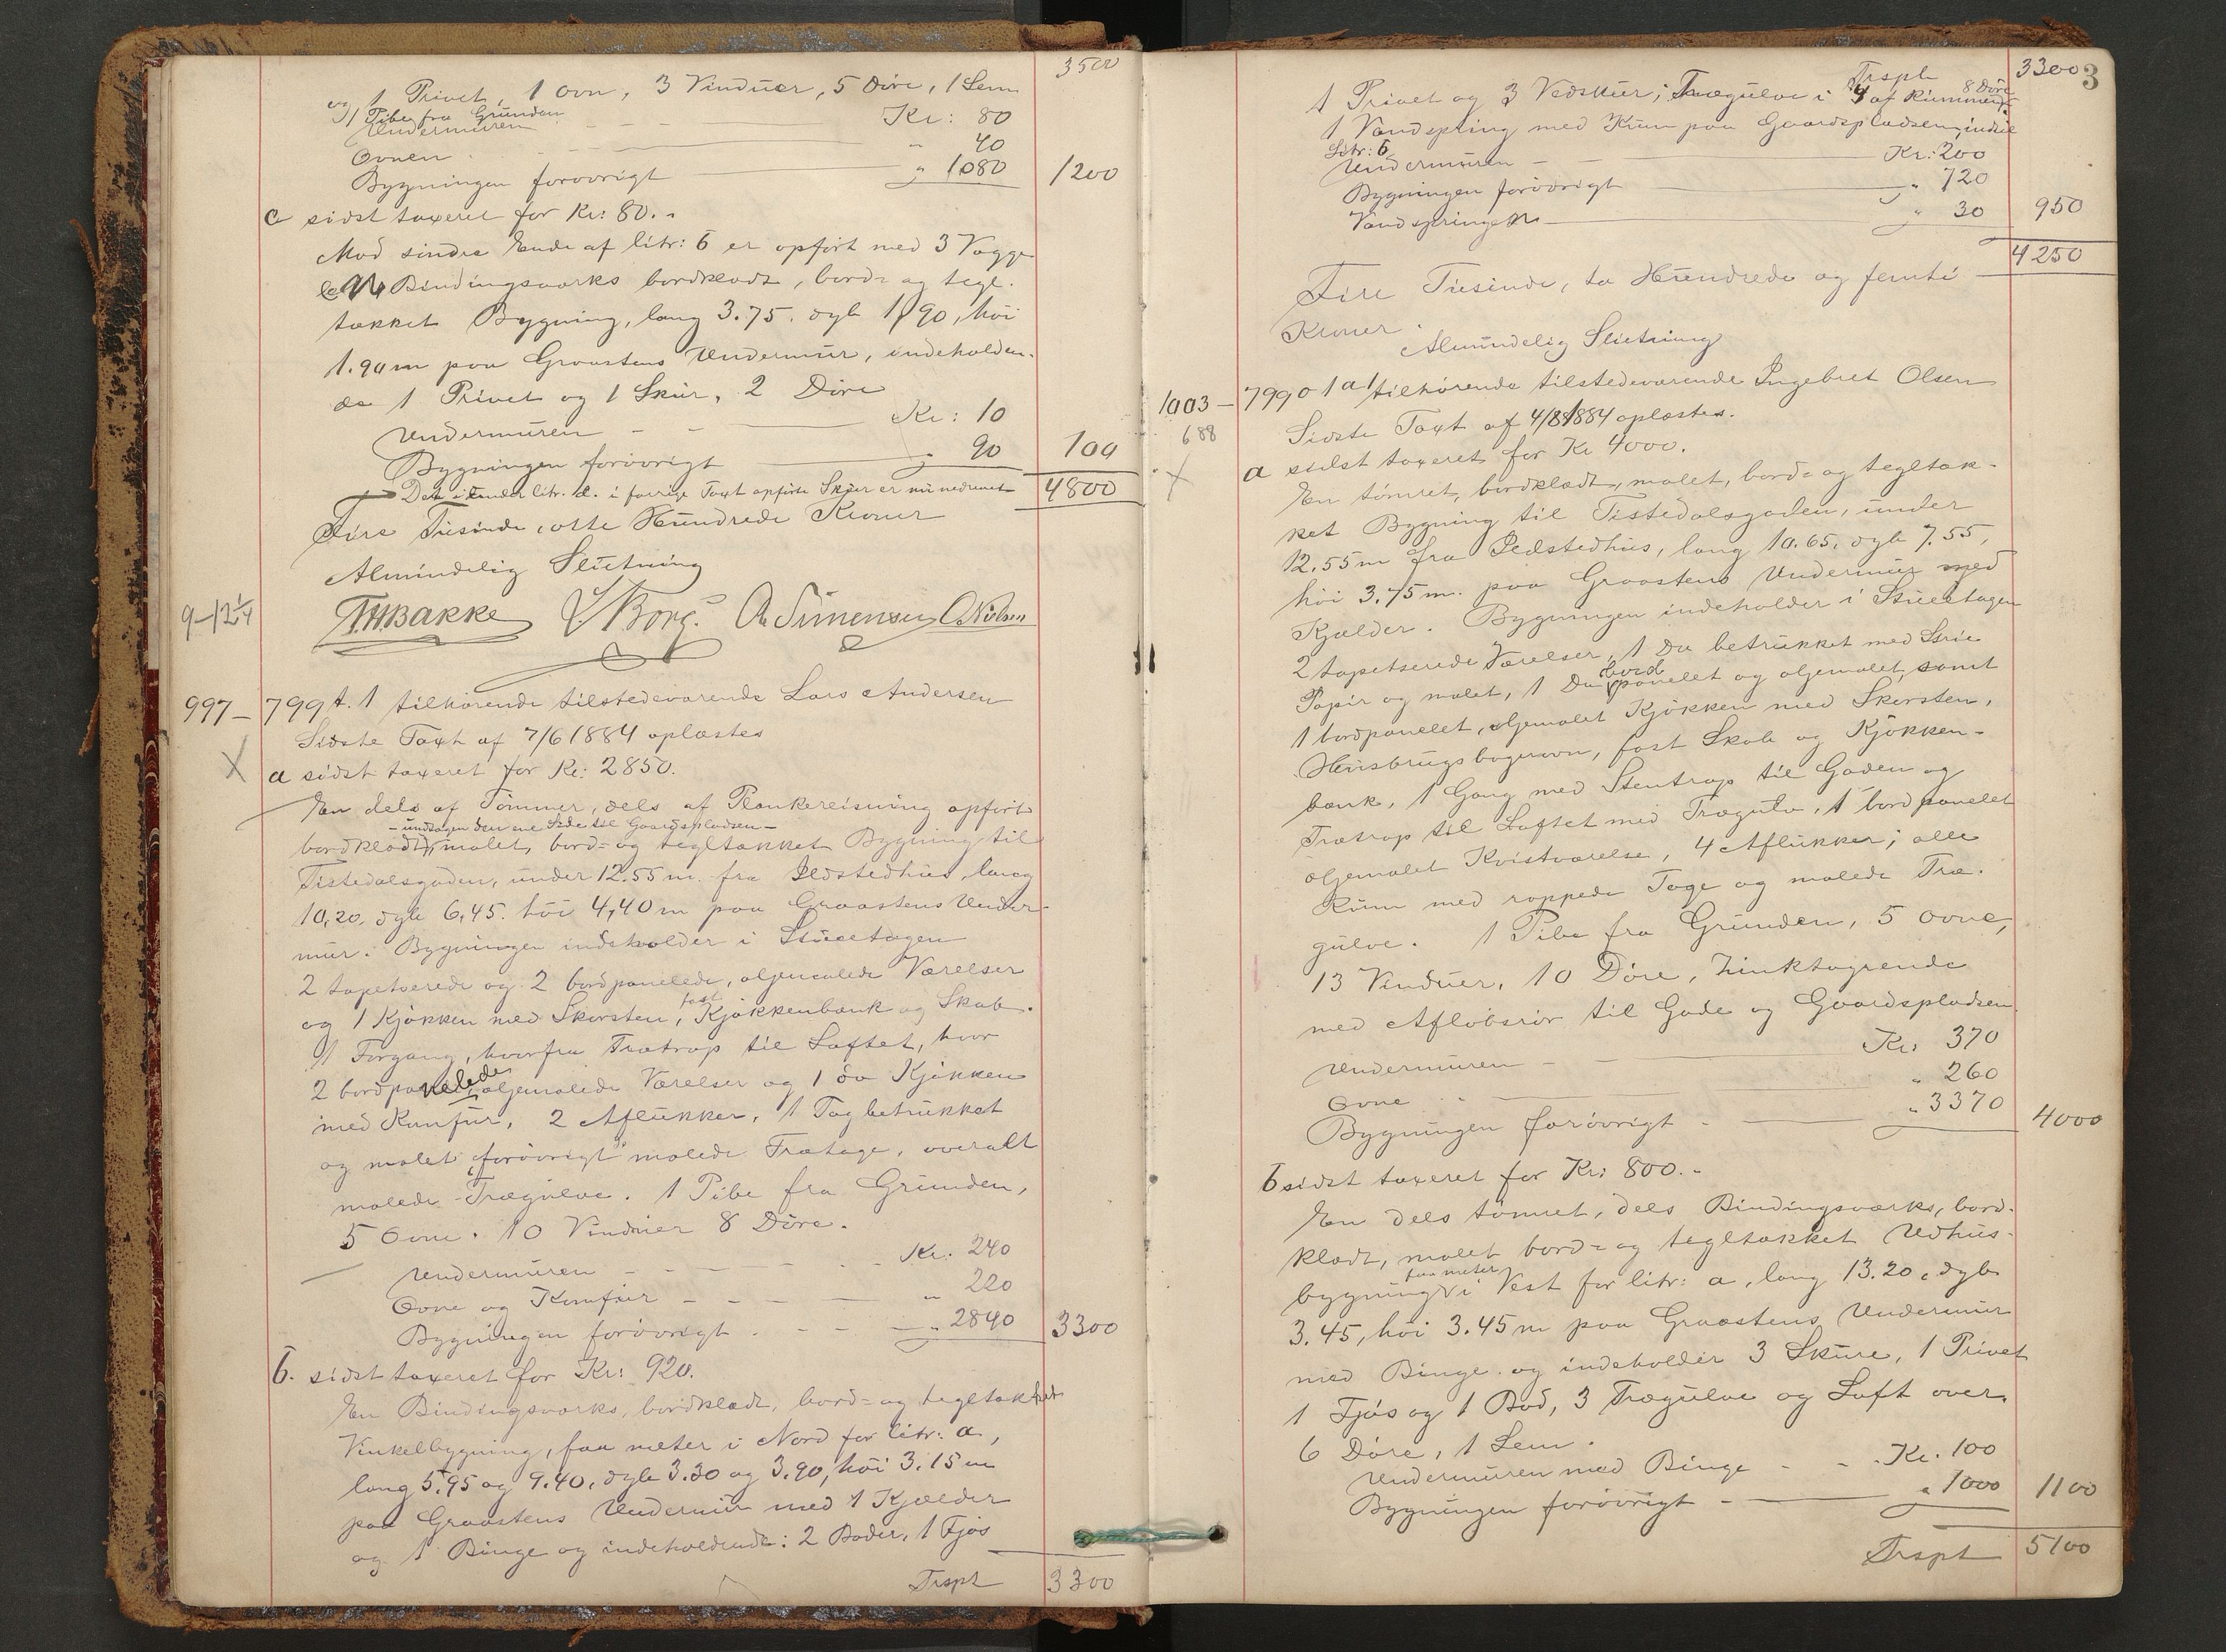 3500
1 Privet, 1 Ovn, 3 Vinduer, 5 Døre, 1 Lem
og 1 Pibe fra Grunden
Undermuren - - - Kr: 80
Ovnen - " 40
Bygningen forøvrigt " 1080 1200
c sidst taxeret for Kr: 80.-
Mod søndre Ende af litr: b er opført med 3 Vægge
en Bindingsværks bordklædt, bord- og tegl-
tækket Bygning, lang 3.75. dyb 1,90, høi
1.90 m paa Graastens Undermur, indeholden-
de 1 Privet og 1 Skur, 2 Døre
Undermuren - - Kr: 10
Bygningen forøvrigt " 90 100
Det under litr. d. i forrige Taxt opførte Skur er nu nedrevet 4800
Fire Tusinde, otte Hundrede Kroner
Almindelig Slutning
9-12 1/4
T.H.BAKKE Borg. A Simensen O. Nilsen
997- 799 t. 1 tilhørende tilstedeværende Lars Andersen
Sidste Taxt af 7/6 1884 oplæstes
X a sidst taxeret for Kr: 2850.
En dels af Tømmer, dels af Plankereisning opført
- undtagen den ene Side til Gaardspladsen -
bordklædt, malet, bord- og tegltækket Bygning til
Tistedalsgaden, under 12.55 m. fra Ildstedhus, lang
10,20, dyb 6,45. høi 4,40 m paa Graastens Under-
mur. Bygningen indeholder i Stueetagen
2 tapetserede og 2 bordpanelede, oljemalede Værelser
og 1 Kjøkken med Skorsten, fast Kjøkkenbænk og Skab.
1 Forgang, hvorfra Trætrap til Loftet, hvor
2 bordpanelede, oljemalede Værelser og 1 do Kjøkken
med Komfur, 2 Aflukker, 1 Tag betrukket
og malet, forøvrigt malede Trætage, overalt
malede Trægulve. 1 Pibe fra Grunden,
5 Ovne. 10 Vinduer 8 Døre.
Undermuren - - - - Kr. 240
Ovne og Komfur - - - " 220
Bygningen forøvrigt - - - " 2840 3300
b. sidst taxeret for Kr: 920.
En Bindingsværks, bordklædt, bord- og tegltækket
Vinkelbygning, faa meter i Nord for litr: a,
lang 5,95 og 9.40, dyb 3.30 og 3.90, høi 3.15 m
paa Graastens Undermur med 1 Kjælder
og 1 Binge og indeholdende: 2 Boder, 1 Fjøs
Trspt 3300
3
Trspt 3300
1 Privet og 3 Vedskur; Trægulve i 4 af Rummene 8 Døre
1 Vandspring med Kum paa Gaardspladsen
Litr: b
Undermuren - - Kr: 200
Bygningen forøvrigt " 720
Vandspringen " 30 950
4250
Fire Tusinde, to Hundrede og femti
Kroner.
Almindelig Slutning
1003- 799 o 1 a 1 tilhørende tilstedeværende Ingebret Olsen
688 Sidste Taxt af 4/8 1884 oplæstes.
X a sidst taxeret for Kr 4000.
En tømret, bordklædt, malet, bord- og tegltæk-
ket Bygning til Tistedalsgaden, under
12.55 m fra Ildstedhus, lang 10.65, dyb 7.55,
høi 3.75 m. paa Graastens Undermur med
Kjælder. Bygningen indeholder i Stueetagen
2 tapetserede Værelser, 1 Do betrukket med Strie
Papir og malet, 1 Do bordpanelet og oljemalet, samt
1 bordpanelet, oljemalet Kjøkken med Skorsten,
Husbrugsbagerovn, fast Skab og Kjøkken-
bænk, 1 Gang med Stentrap til Gaden og
Trætrap til Loftet med Trægulv, 1 bordpanelet
oljemalet Kvistværelse, 4 Aflukker; alle
Rum med rappede Tage og malede Træ-
gulve. 1 Pibe fra Grunden, 5 Ovne,
13 Vinduer, 10 Døre, Zinktagrende
med Afløbsrør til Gade og Gaardspladsen
Undermuren - - Kr: 370
Ovne - " 260
Bygningen forøvrigt - " 3370 4000
b sidst taxeret for Kr: 800.-
En dels tømret, dels Bindingsværks, bord-
klædt, malet bord- og tegltækket Udhus-
bygning faa meter i Vest for litr: a, lang 13.20, dyb
3.45, høi 3.45 m paa Graastens Undermur
med Binge og indeholder 3 Skure, 1 Privet
1 Fjøs og 1 Bod, 3 Trægulve og Loft over,
6 Døre, 1 Lem.
Undermuren med Binge - - Kr. 100
Bygningen forøvrigt - " 1000 1100
Trspt 5100